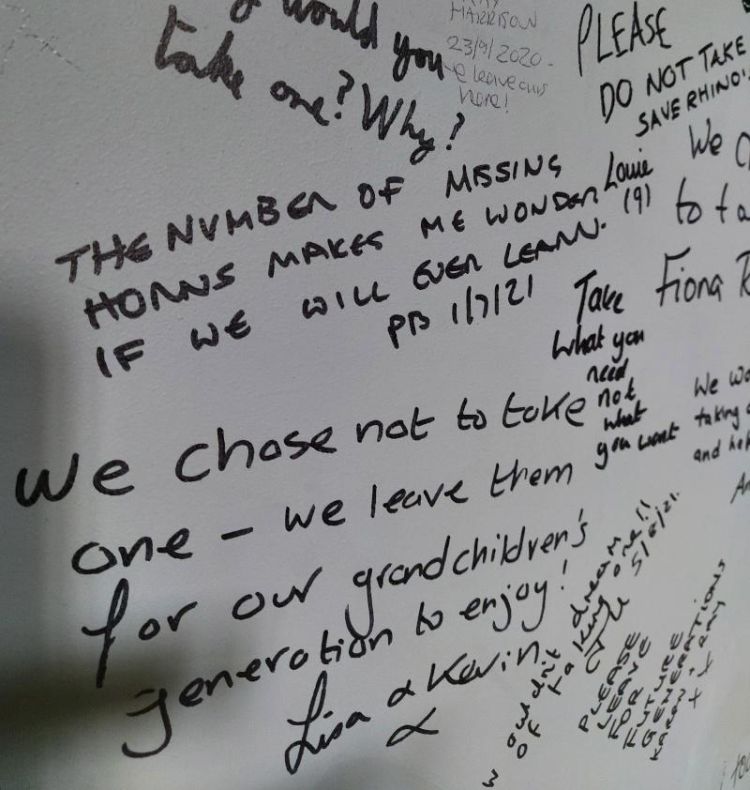 would you
take one? Why?
HARRISON
23/9/2020.
leave ours
here!
PLEASE
DO NOT TAKE
SAVE RHINO'S
THE NUMBER OF MISSING
HORNS MAKES ME WONDER
IF WE WILL EVER LEARN.
PB 1/7/21
Louie
(9)
We
to ta
Fiona R
Take
what you
need
not
what
you want
We wo
taking
and
We chose not to take
one - we leave them
for our grandchildren's
generation to enjoy!
Lisa & Kevin
wouldn't dream
of taking one!!
5/6/21
PLEASE
LEAVE
FOR FUTURE
GENERATIONS